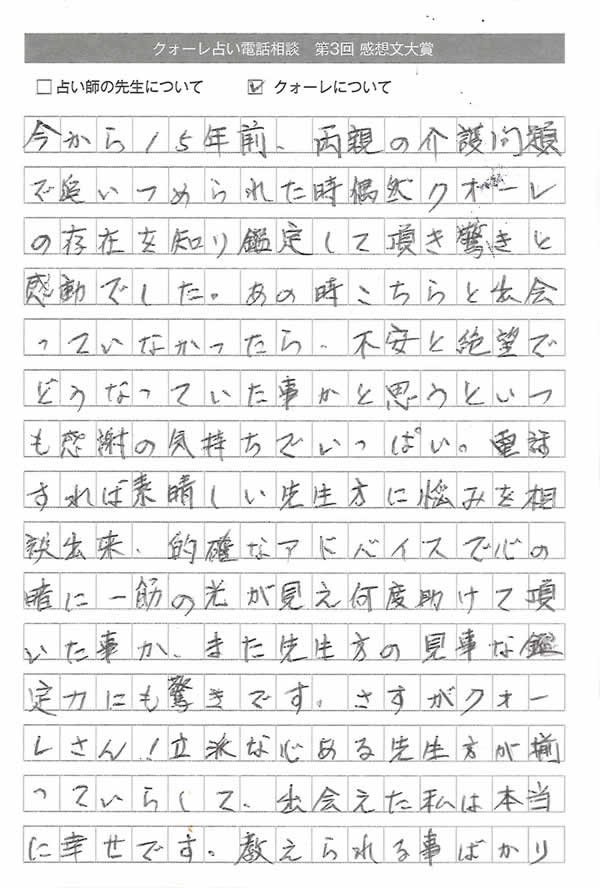 クォーレ占い電話相談 第3回 感想文大賞
占い師の先生について クォーレについて
今から15年前、両親の介護問題
で追いつめられた時偶然クォーレ
の存在を知り鑑定して頂き驚きと
感動でした。あの時こちらと出会
っていなかったら、不安と絶望で
どうなっていた事かと思うといつ
も感謝の気持ちでいっぱい。電話
すれば素晴しい先生方に悩みを相
談出来、的確なアドバイスで心の
暗に一筋の光が見え何度助けて頂
いた事か、また先生方の見事な鑑
定力にも驚きです。さすがクォー
レさん!立派な心ある先生方が揃
っていらして、出会えた私は本当
に幸せです。教えられる事ばかり